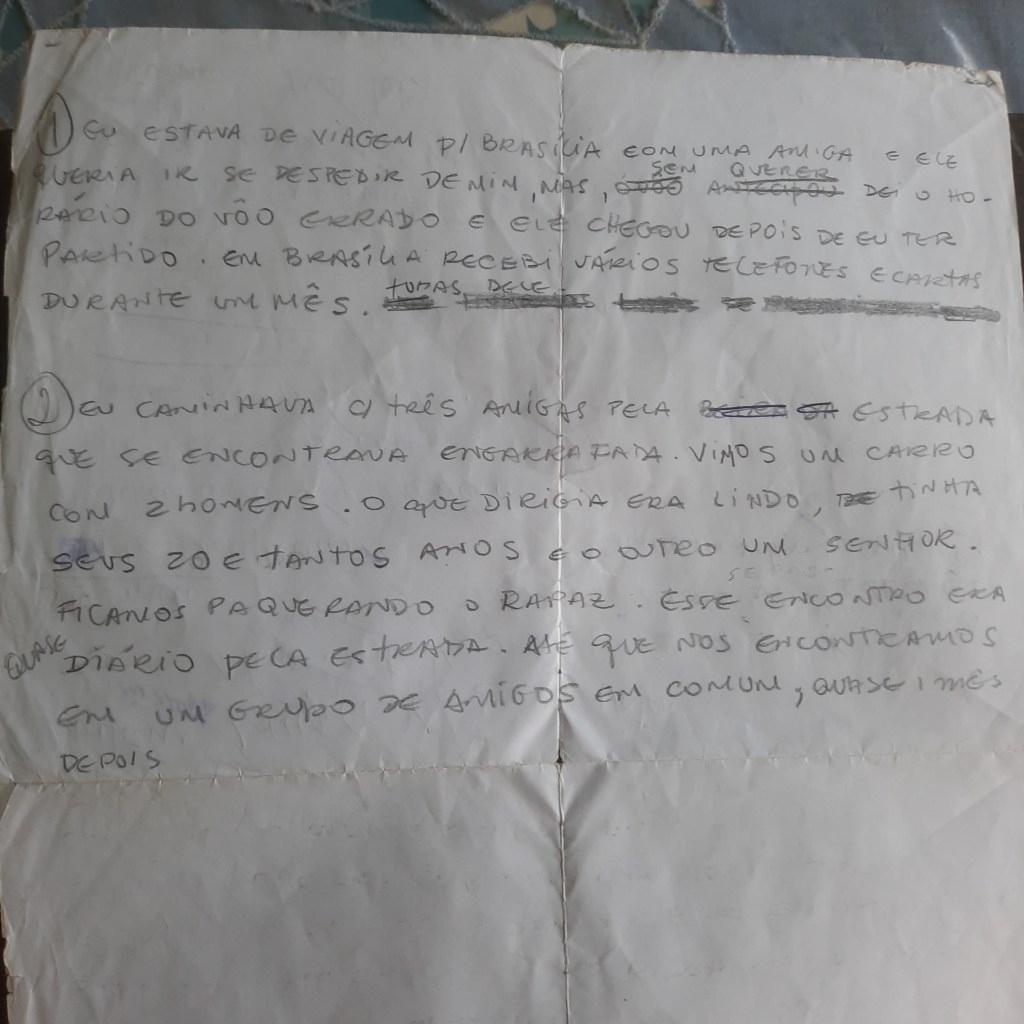 ① EU ESTAVA DE VIAGEM P/ BRASÍLIA COM UMA AMIGA E ELE
QUERIA IR SE DESPEDIR DE MIM, MAS, SEM QUERER DEI O HO-
RÁRIO DO VÔO ERRADO E ELE CHEGOU DEPOIS DE EU TER
PARTIDO. EM BRASÍLIA RECEBI VÁRIOS TELEFONES E CARTAS
DURANTE UM MÊS. TODAS DELE
② EU CAMINHAVA C/ TRÊS AMIGAS PELA ESTRADA
QUE SE ENCONTRAVA ENGARRAFADA. VIMOS UM CARRO
COM 2 HOMENS. O QUE DIRIGIA ERA LINDO, TINHA
SEUS 20 E TANTOS ANOS E O OUTRO UM SENHOR.
FICAMOS PAQUERANDO O RAPAZ. ESSE ENCONTRO ERA
QUASE DIÁRIO PELA ESTRADA. ATÉ QUE NOS ENCONTRAMOS
EM UM GRUPO DE AMIGOS EM COMUM, QUASE 1 MÊS
DEPOIS